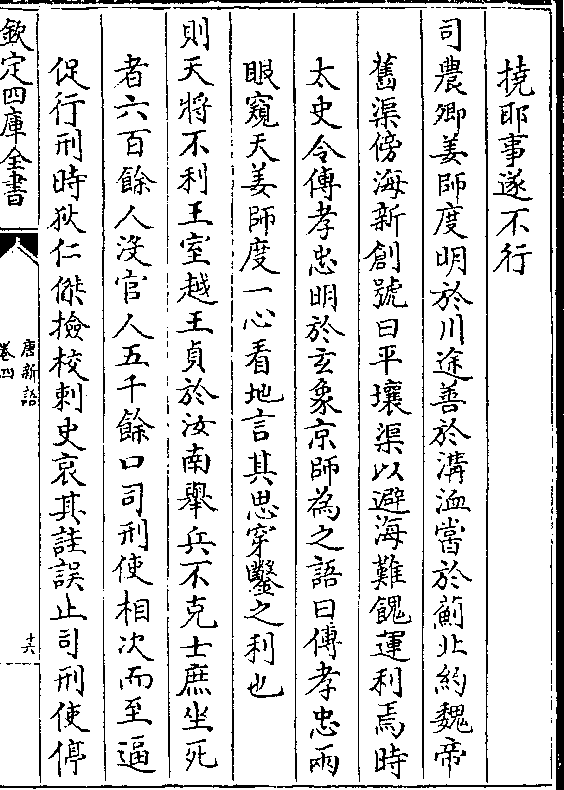 撓耶事遂不行
司農卿姜師度明於川途善於溝洫嘗於薊北約魏帝
舊渠傍海新創號曰平壤渠以避海難餽運利焉時
太史令傅孝忠明於玄象京師為之語曰傅孝忠兩
眼窺天姜師度一心看地言其思穿鑿之利也
則天將不利王室越王貞於汝南舉兵不克士庶坐死
者六百餘人沒官人五千餘口司刑使相次而至逼
促行刑時狄仁傑撿校刺史哀其詿誤止司刑使停
欽定四庫全書
唐新語
卷四
十六